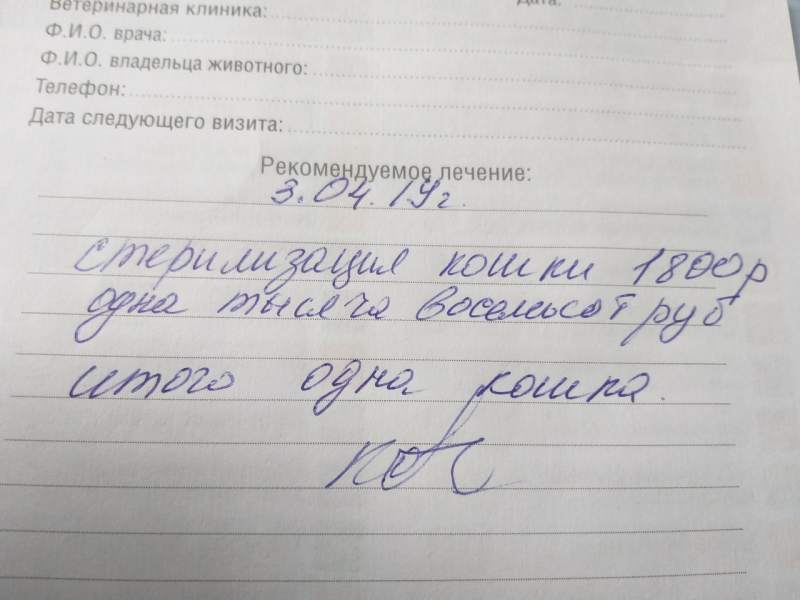 Ветеринарная клиника:
Дата:
Ф.И.О. врача:
Ф.И.О. владельца животного:
Телефон:
Дата следующего визита:
Рекомендуемое лечение:
3.04.19г.
стерилизация кошки 1800р
одна тысяча восемьсот руб
итого одна кошка.